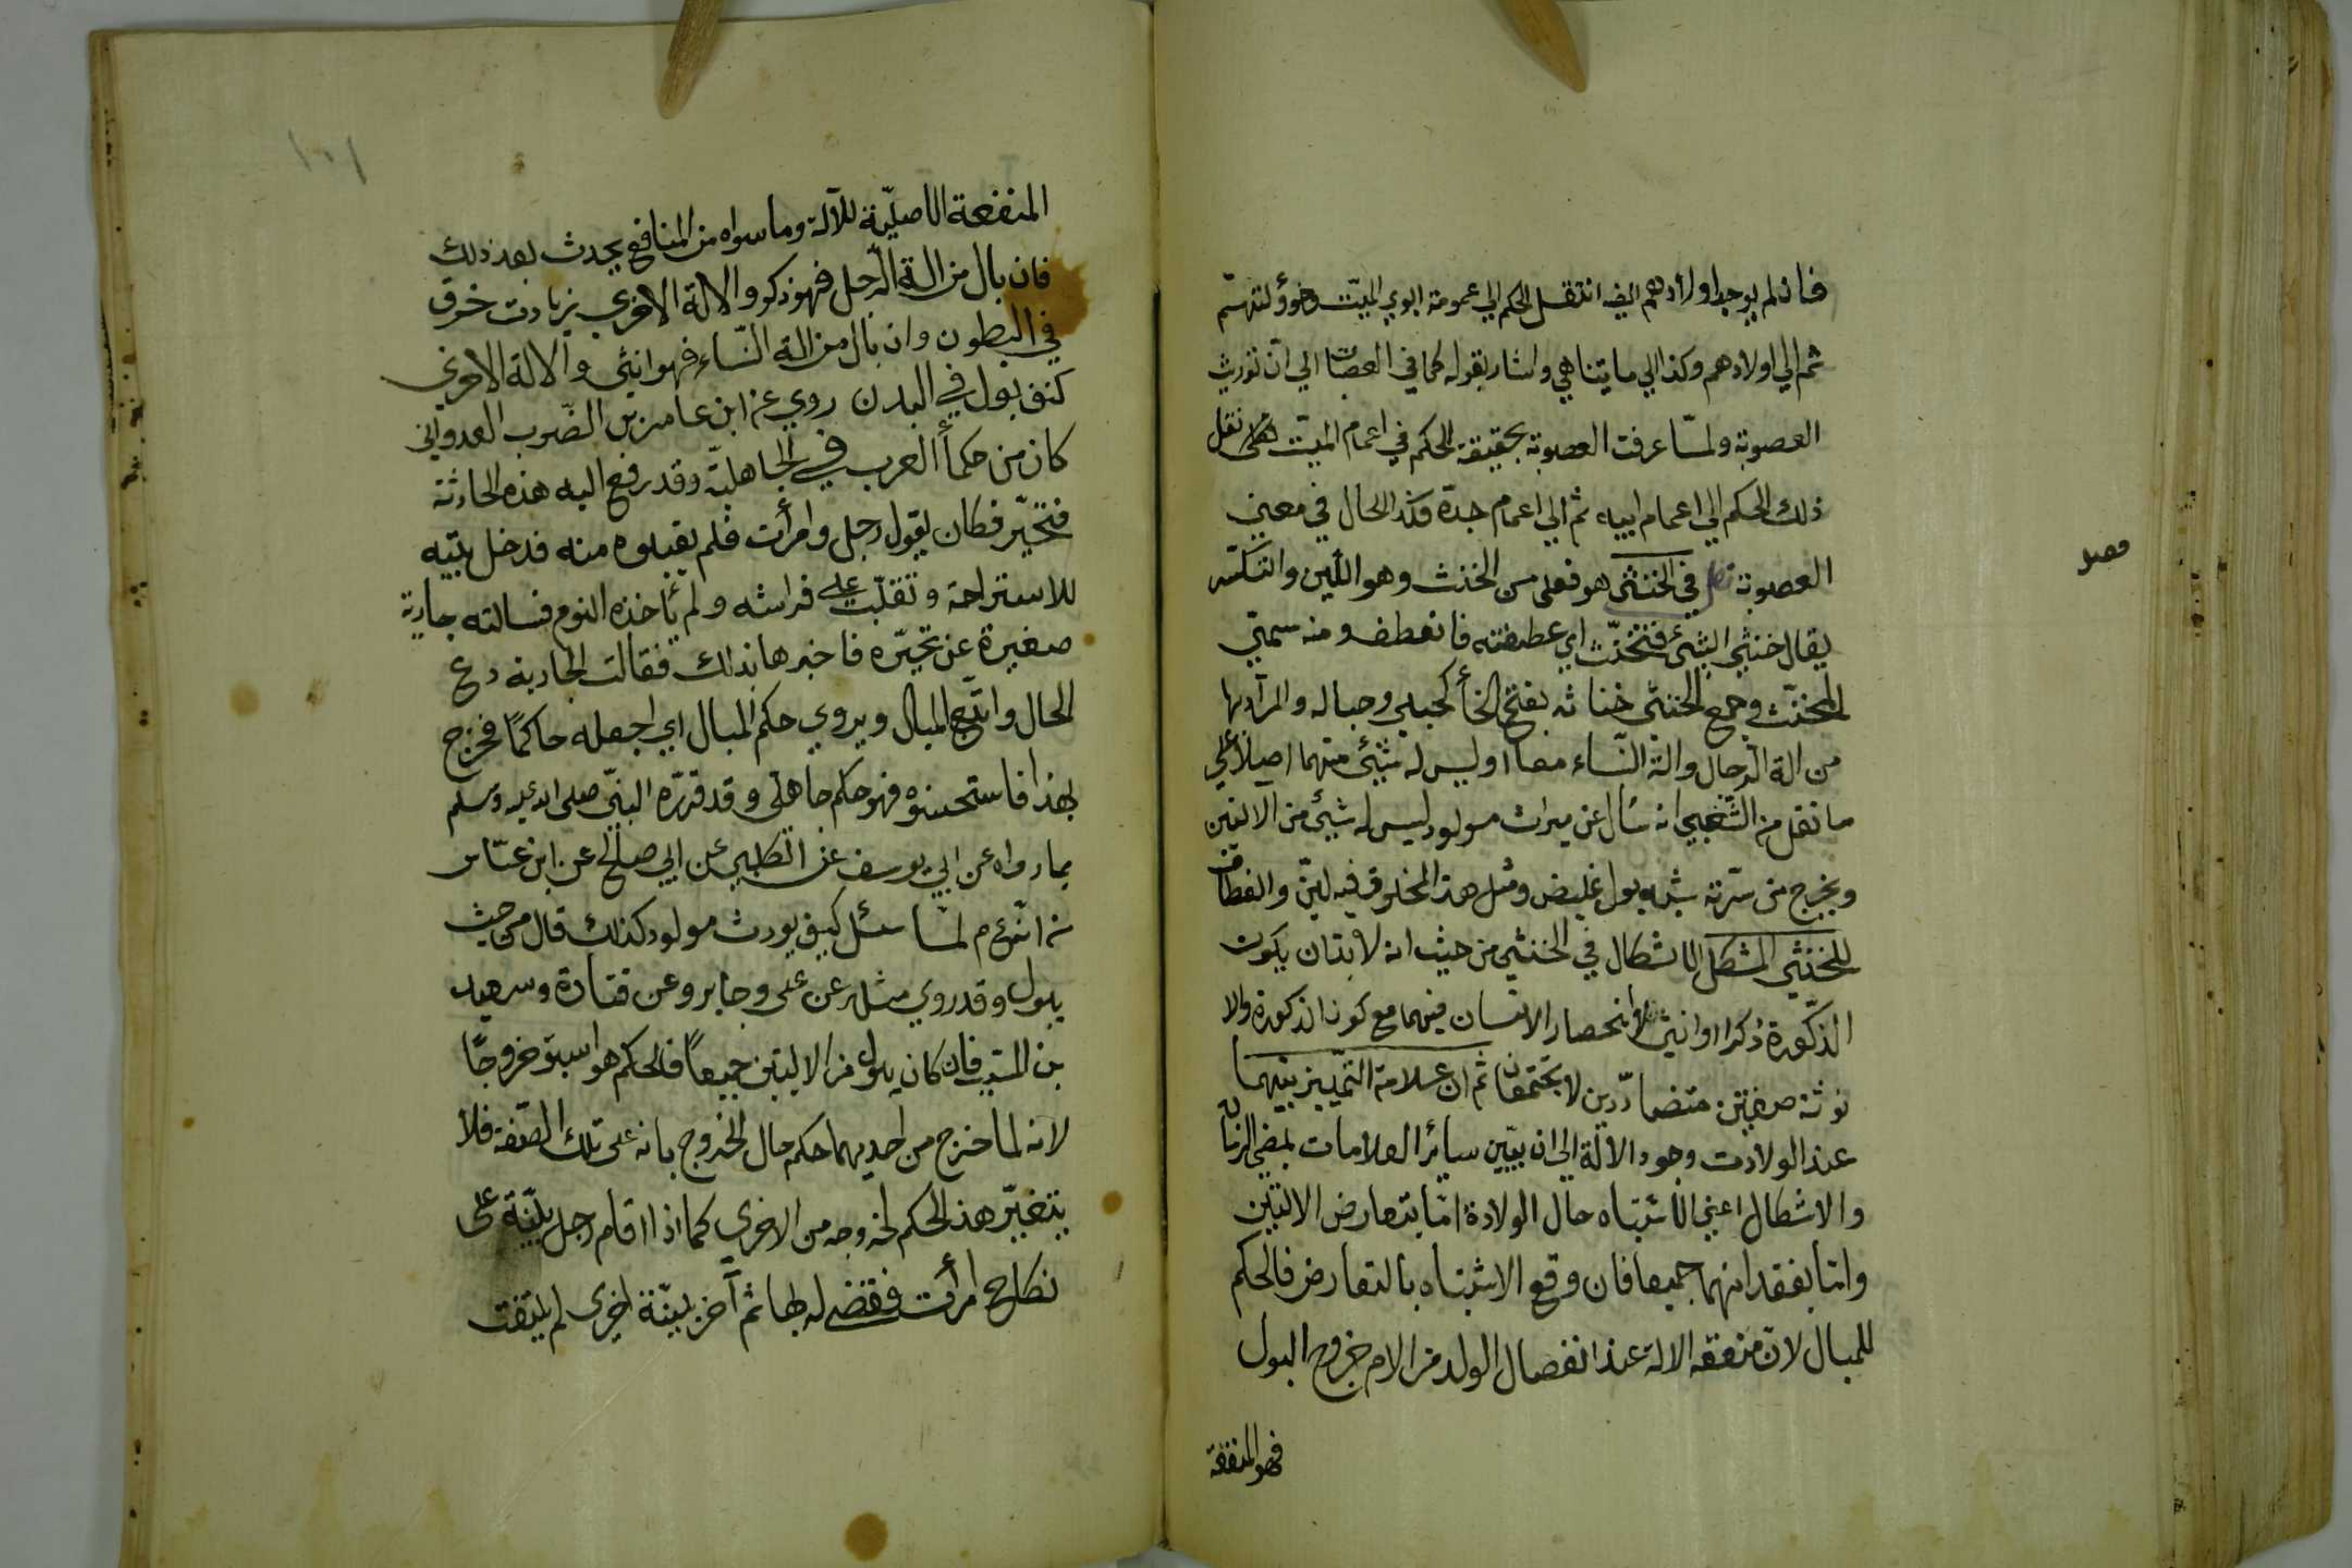 فان لم يوجد اولادهم ايضا انتقل الحكم الي عمومة ابوي الميّت وخوؤلتهم
ثم الي اولادهم وكذا الي ما يتناهي واشار بقوله كما في العصبات الي ان توريث
العصوبة ولمّا عرفت العصوبة بحقيقة الحكم في اعمام الميّت نقل
ذلك الحكم الي اعمام ابيه ثم الي اعمام جدة فكذا الحال في معني
العصوبة فصل في الخنثى هو فعلى من الخنث وهو اللّين والتكسّر
فصل
يقال خنثي الشئ فتخنّث اي عطفته فانعطف ومنه سمّي
المخنّث وجمع الخنثي خناثه بفتح الخأ كحبلي وحباله والمرآد بها
من الة الرّجال والة النّساء معا او ليس له شئ منهما اصلا علي
ما نقل من الشّعبي انه سُال عن ميراث مولود ليس له شئ من الالتين
ويخرج من سرّته شبه بول غليض ومثل هذا المخلوق فيه لين
للخنثي المشكل الاشكال في الخنثي من حيث انه لابدّ ان يكون
الذّكورة ذكرا او انثي لانحصار الانسان فيهما مع كون الذكورة والا
نوثة صفتين متضادّدين لا يجتمعان ثم ان علامة التّمييز بينهما
عند الولادت وجود الالة الي ان يبيّن سائر العلامات بمضي الزمان
والاشكال اعني الاشتباه حال الولادة امّا بتعارض الالتين
وامّا بفقدانهما جميعا فان وقع الاشتباه بالتعارض فالحكم
للمبال لانّ منفعة الالة عند انفصال الولد من الام خروج البول
فهو المنفعة
١٥١
المنفعة الاصليّة للآلة وما سواه من المنافع يحدث بعد ذلك
فان بال من الة الرّجل فهو ذكر والالة الاخري بزيادت خرق
في البطون وان بال من الة النّساء فهو انثي والالة الاخري
كنف بول في البدن روي عن ابن عامر بن الضّرب العدواني
كان من حكمأ العرب في الجاهليّة وقد رفع اليه هذه الحادثة
فتحيّر فكان يقول رجل وامرأت فلم يقبلوه منه فدخل بيّته
للاستراحة وتقلّب على فراشه ولم يأخذه النوم فسالته جارية
صغيرة عن تحيّره فاخبرها بذلك فقالت الجارية دع
الحال واتبع المبال ويروي حكم المبال اي اجعله حاكمًا فخرج
بهذا فاستحسنوه فهو حكم جاهلي وقد قرّره النبيّ صلى الله عليه وسلم
بما رواه عن ابي يوسف عن الكلبي عن ابي صالح عن ابن عبّاس
انّه عم لمّا سئل كيف يورث مولود كذلك قال من حيث
يبول وقد روي مثله عن على وجابر وعن قتادة وسعيد
بن المسيّب فان كان يبول من الالتين جميعًا فالحكم هو اسبق خروجًا
لانه لما خرج من احديهما حكم حال الخروج بانه على تلك الصّفة فلا
يتغيّر هذ الحكم لخروجه من الاخري كما اذا اقام رجل بيّنة على
نكاح امرأت فقضي له بها ثم آخر بيّنة اخرى لم يلتفت